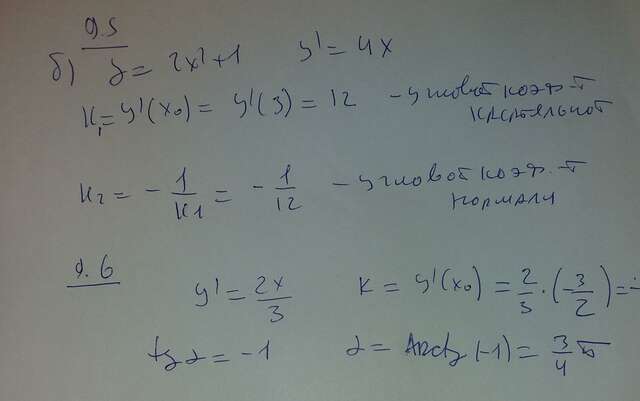 9.5
б) y = 2x²+1 y' = 4x
K₁ = y'(x₀) = y'(3) = 12 – угловой коэф-т
касательной
K₂ = - 1/K1 = - 1/12 – угловой коэф-т
нормали
9.6
y' = 2x/3 K = y'(x₀) = 2/3 · (-3/2) = -
tg α = -1 α = Arctg (-1) = 3/4 π